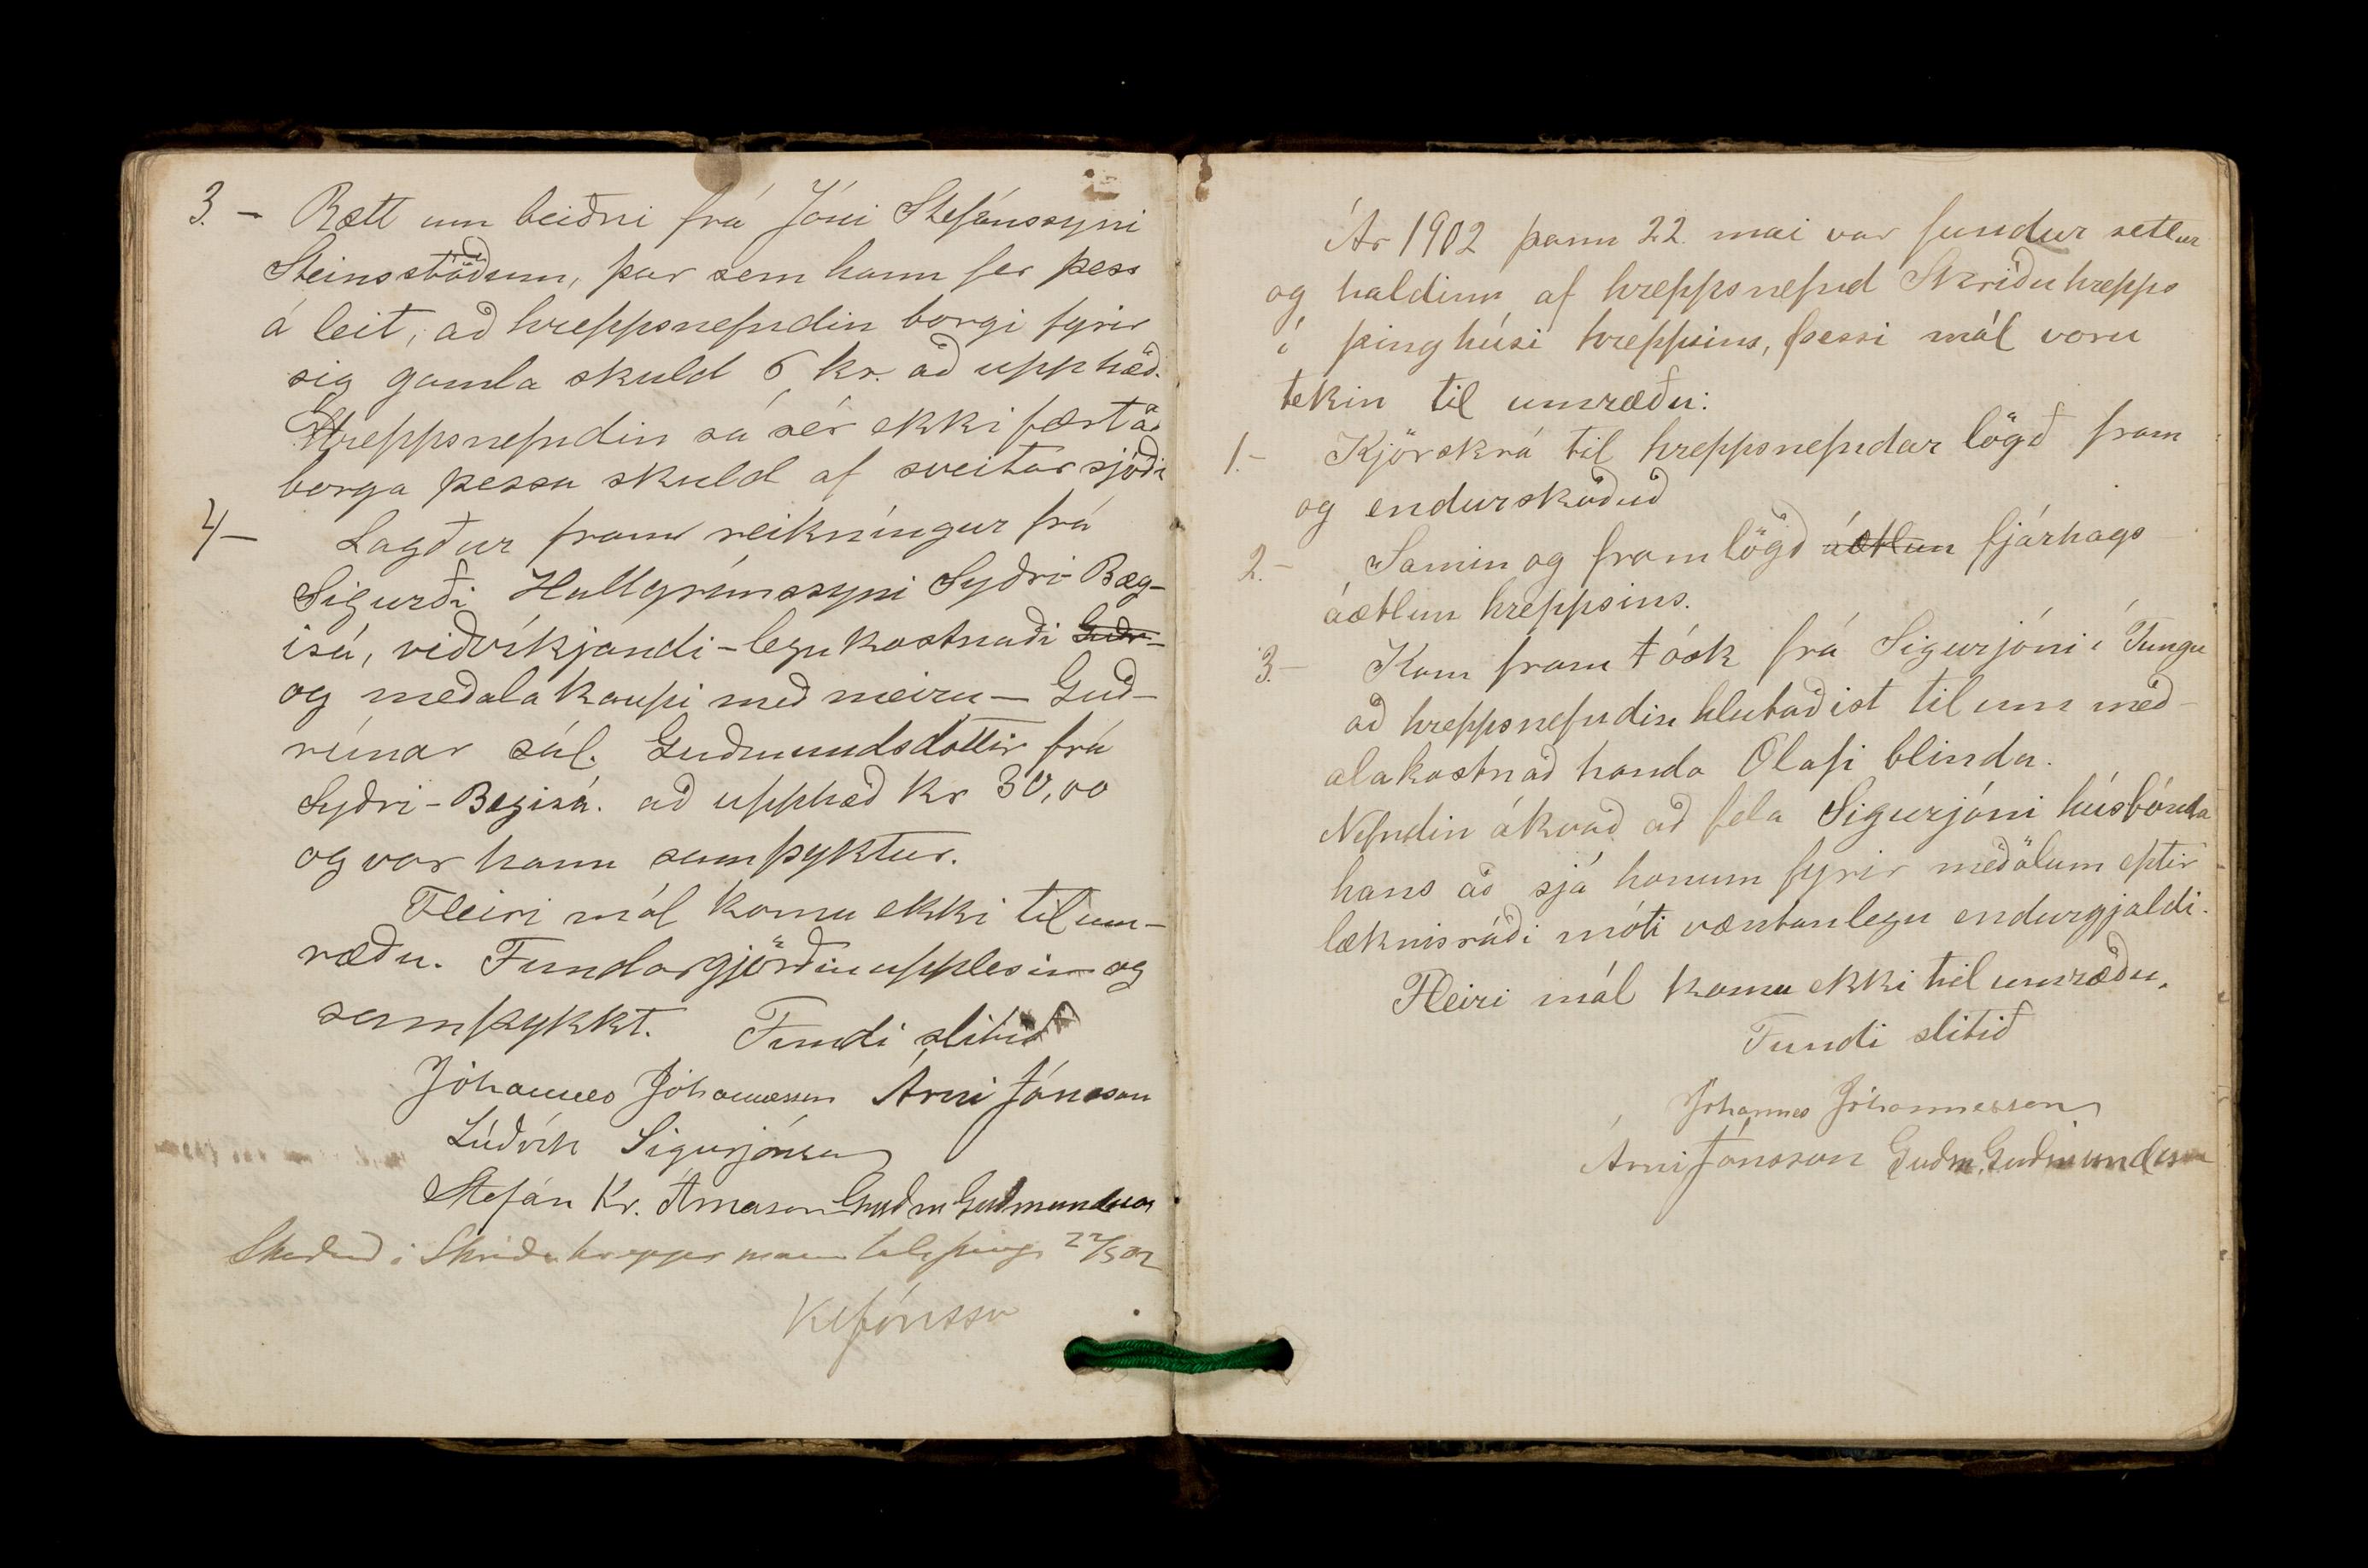 3. - Rætt um beiðni frá Jóni Stefánssyni
Steinsstöðum, þar sem hann fer þess
á leit, að hreppsnefndin borgi fyrir
sig gamla skuld 6 kr. að upphæð.
Hreppsnefndin sá sér ekki fært að
borga þessa skuld af sveitarsjóði
4 - Lagður fram reikníngur frá
Sigurði Hallgrímssyni Syðri-Bæg-
isá, viðvíkjandi - legukostnaði Guðr-
og meðalakaupi með meiru - Guð-
rúnar sál. Guðmundsdóttir frá
Syðri-Bægisá. að upphæð kr 30,00
og var hann samþyktur.
Fleiri mál komu ekki til um-
ræðu. Fundargjörðin upplesin og
samþykkt. Fundi slitið
Jóhannes Jóhannesson Árni Jónsson
Lúðvík Sigurjónsson
Stefán Kr. Árnason Guðm Guðmundsson
Skoðað í Skriðuhrepps manntalsþingi 22/5 02
Kl Jónsson
Ár 1902 þann 22. mai var fundur settur
og haldinn af hreppsnefnd Skriðuhrepps
í þinghúsi hreppsins, þessi mál voru
tekin til umræðu:
1. - Kjörskrá til hreppsnefndar lögð fram
og endurskoðuð
2. - Samin og framlögð áætlun fjárhags
áætlun hreppsins.
3. - Kom fram ósk frá Sigurjóni í Tungu
að hreppsnefndin hlutaðist til um með-
alakostnað handa Olafi blinda.
Nefndin ákvað að fela Sigurjóni húsbónda
hans að sjá honum fyrir meðölum eptir
læknisráði móti væntanlegu endurgjaldi.
Fleiri mál komu ekki til umræðu.
Fundi slitið
Jóhannes Jóhannesson
Árni Jónsson Guðm. Guðmundsson